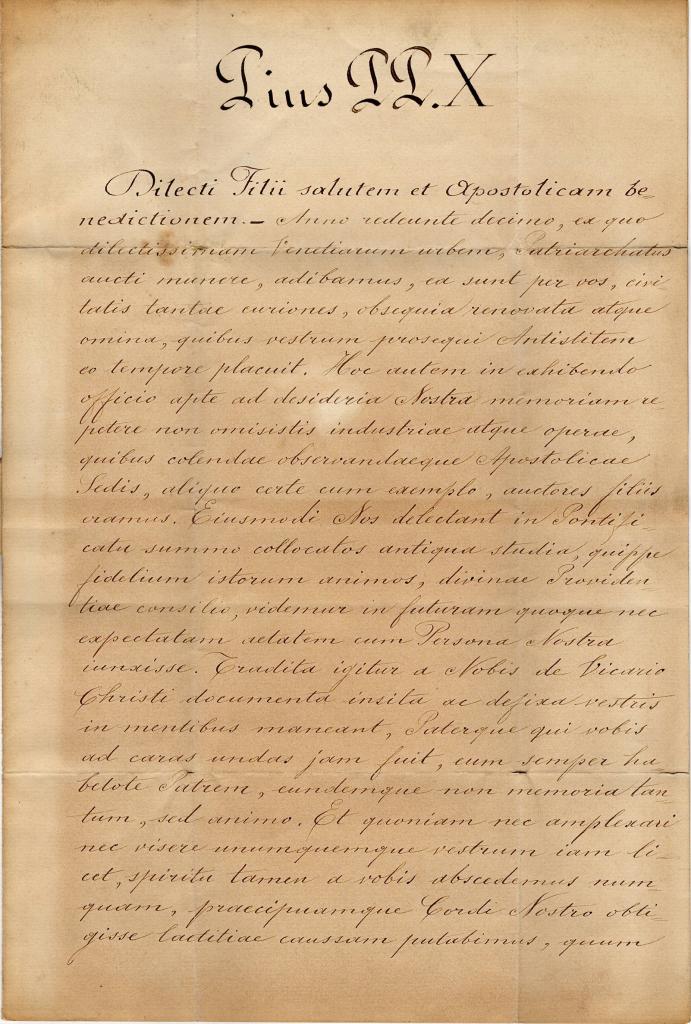 Pius PP. X
Dilecti Filii salutem et Apostolicam be-
nedictionem. — Anno redeunte decimo, ex quo
dilectissimam Venetiarum urbem, Patriarchatus
aucti munere, adibamus, ea sunt per vos, civi
tatis tantae curiones, obsequia renovata atque
omina, quibus vestrum prosequi Antistitem
eo tempore placuit. Hoc autem in exhibendo
officio apte ad desideria Nostra memoriam re
petere non omisistis industriae atque operae,
quibus colendae observandaeque Apostolicae
Sedis, aliquo certe cum exemplo, auctores filiis
eramus. Eiusmodi Nos delectant in Pontifi-
catu summo collocatos antiqua studia, quippe
fidelium istorum animos, divinae Providen-
tiae consilio, videmur in futuram quoque nec
expectatam aetatem cum Persona Nostra
iunxisse. Tradita igitur a Nobis de Vicario
Christi documenta insita ac defixa vestris
in mentibus maneant, Paterque qui vobis
ad caras undas jam fuit, eum semper ha-
betote Patrem, eundemque non memoria tan-
tum, sed animo. Et quoniam nec amplexari
nec visere unumquemque vestrum iam li-
cet, spiritu tamen a vobis abscedemus num-
quam, praecipuamque Cordi Nostro obti-
gisse laetitiae caussam putabimus, quum